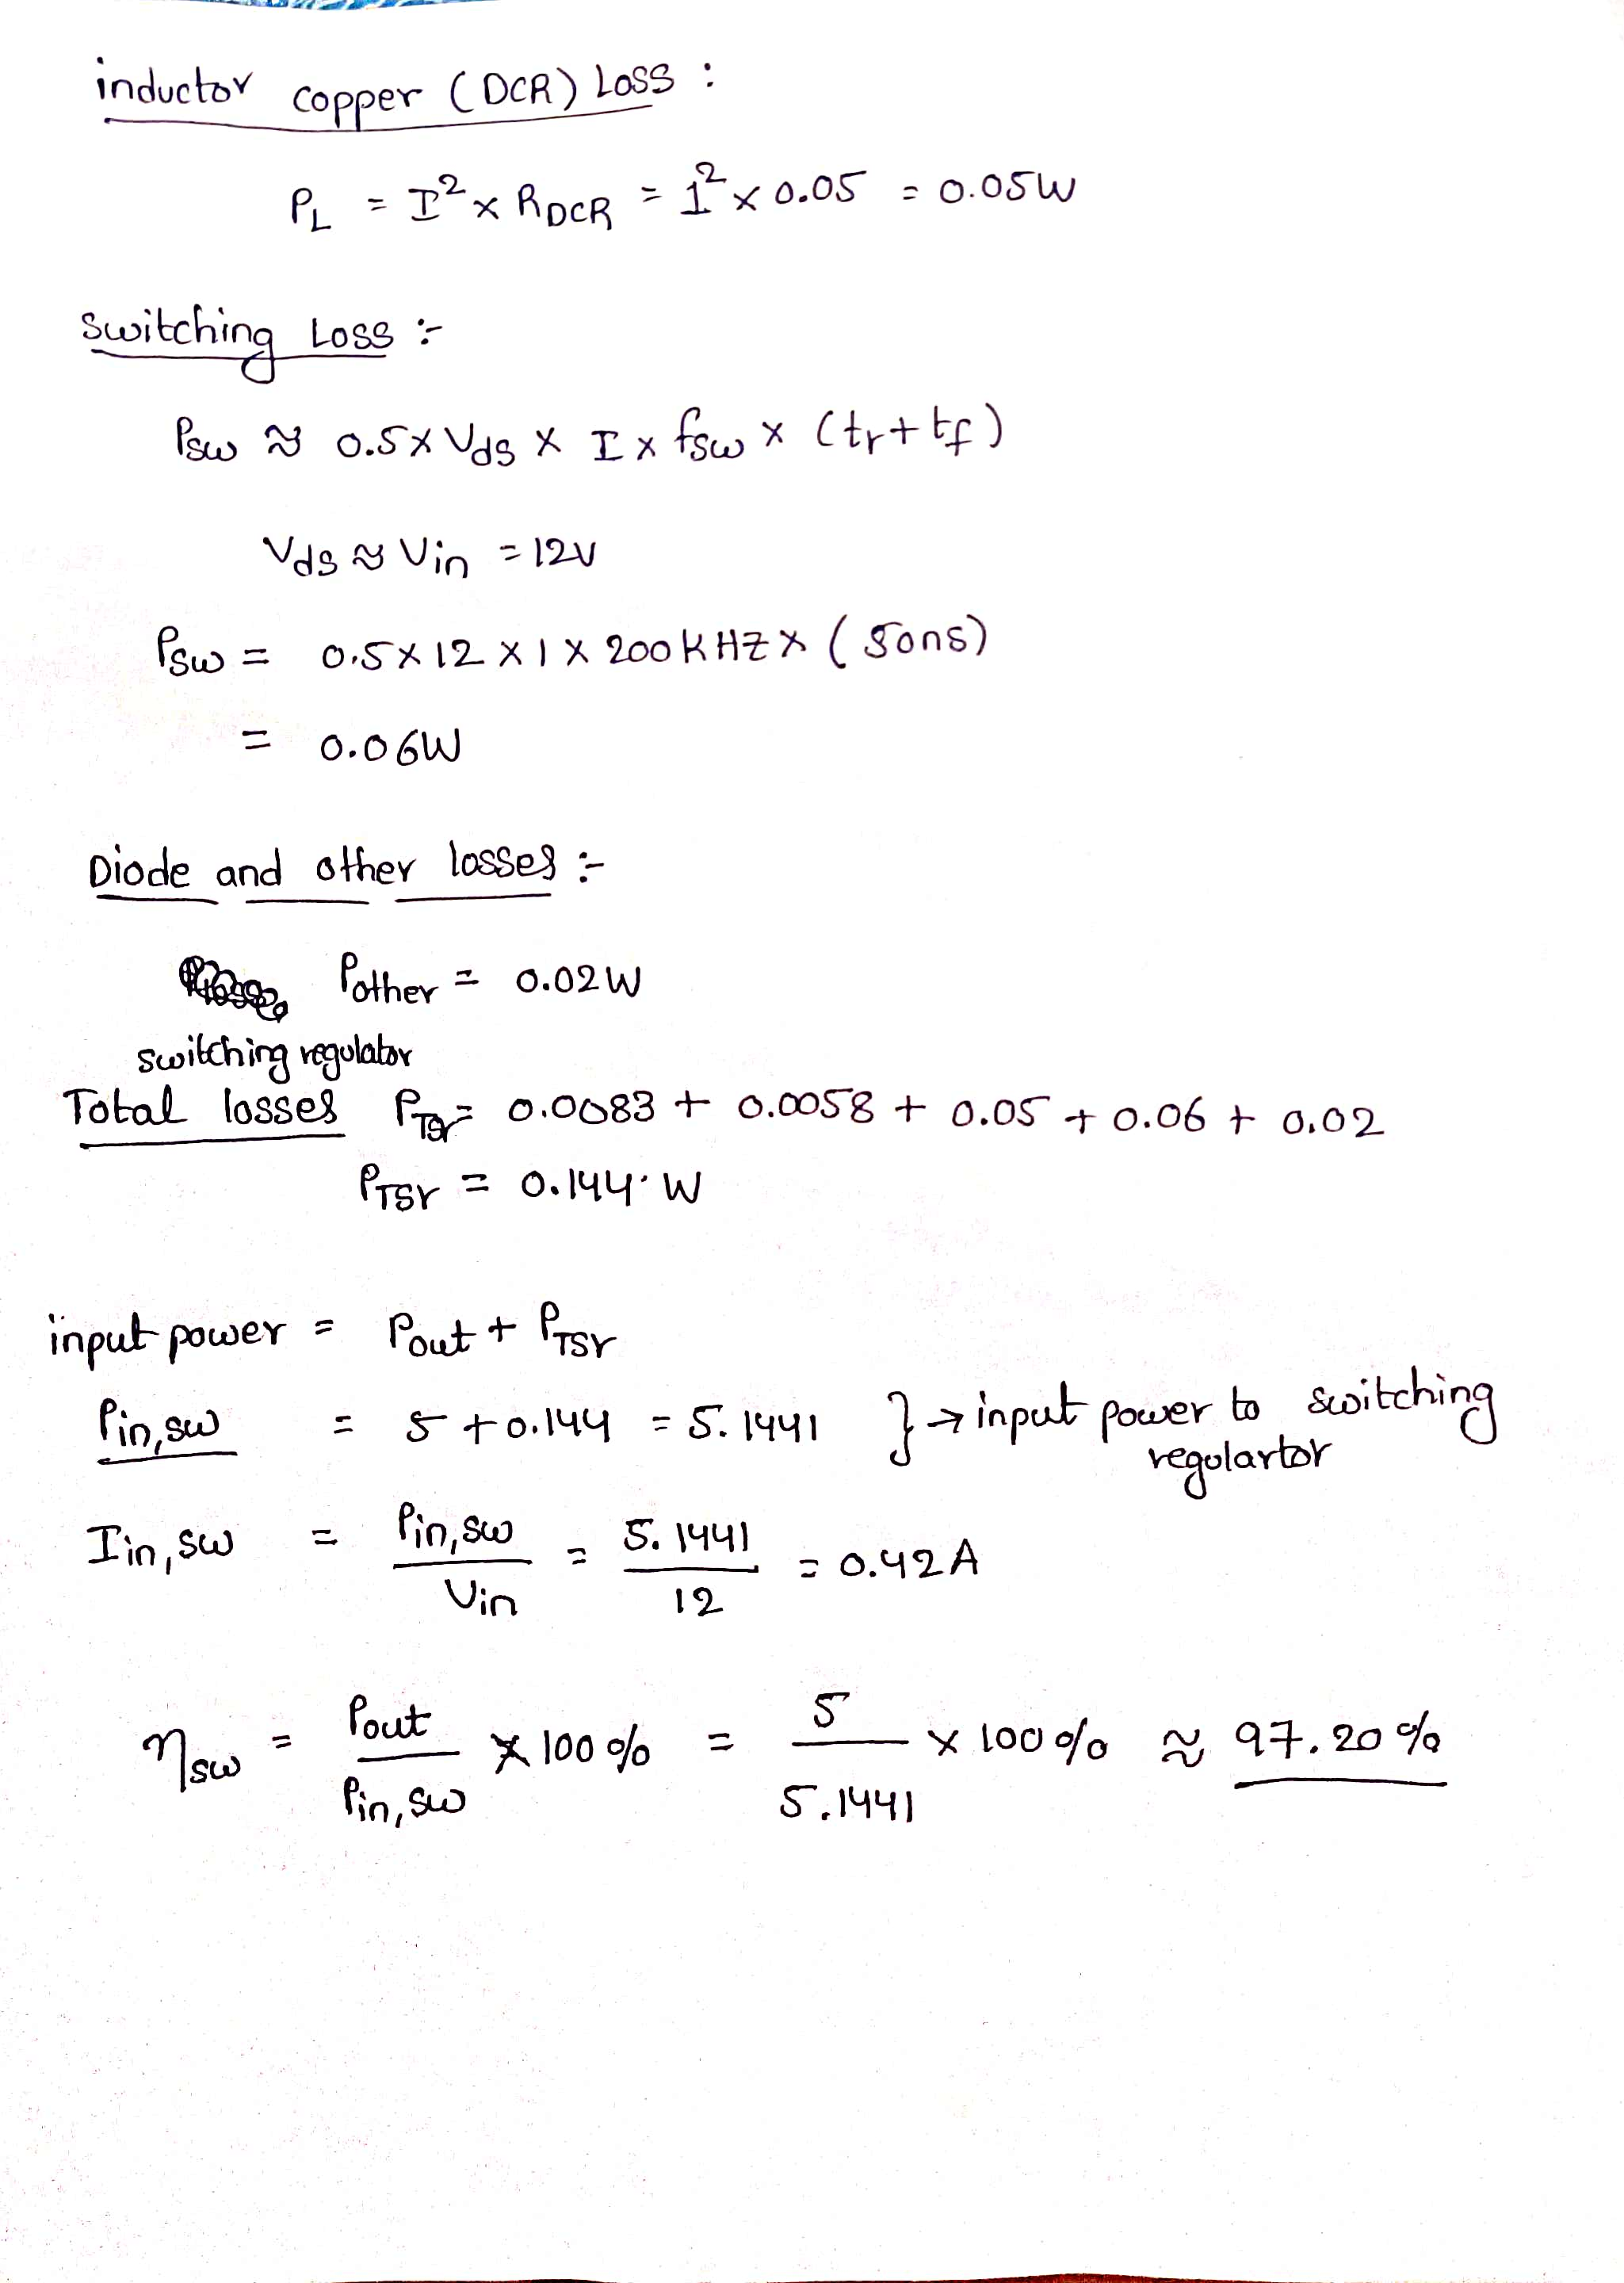 inductor copper (DCR) Loss :
P_L = I² x R_DCR = 1² x 0.05 = 0.05W
Switching Loss :-
Psw ≈ 0.5 x Vds x I x fsw x (tr + tf)
Vds ≈ Vin = 12V
Psw = 0.5 x 12 x 1 x 200 KHZ x (50ns)
= 0.06W
Diode and other losses :-
Pother = 0.02W
switching regulator
Total losses P_TSr = 0.0083 + 0.0058 + 0.05 + 0.06 + 0.02
P_TSr = 0.144 W
input power = Pout + P_TSr
Pin,sw = 5 + 0.144 = 5.1441 } → input power to switching
regulartor
Iin,sw = Pin,sw / Vin = 5.1441 / 12 = 0.42A
ηsw = Pout / Pin,sw x 100 % = 5 / 5.1441 x 100 % ≈ 97.20 %